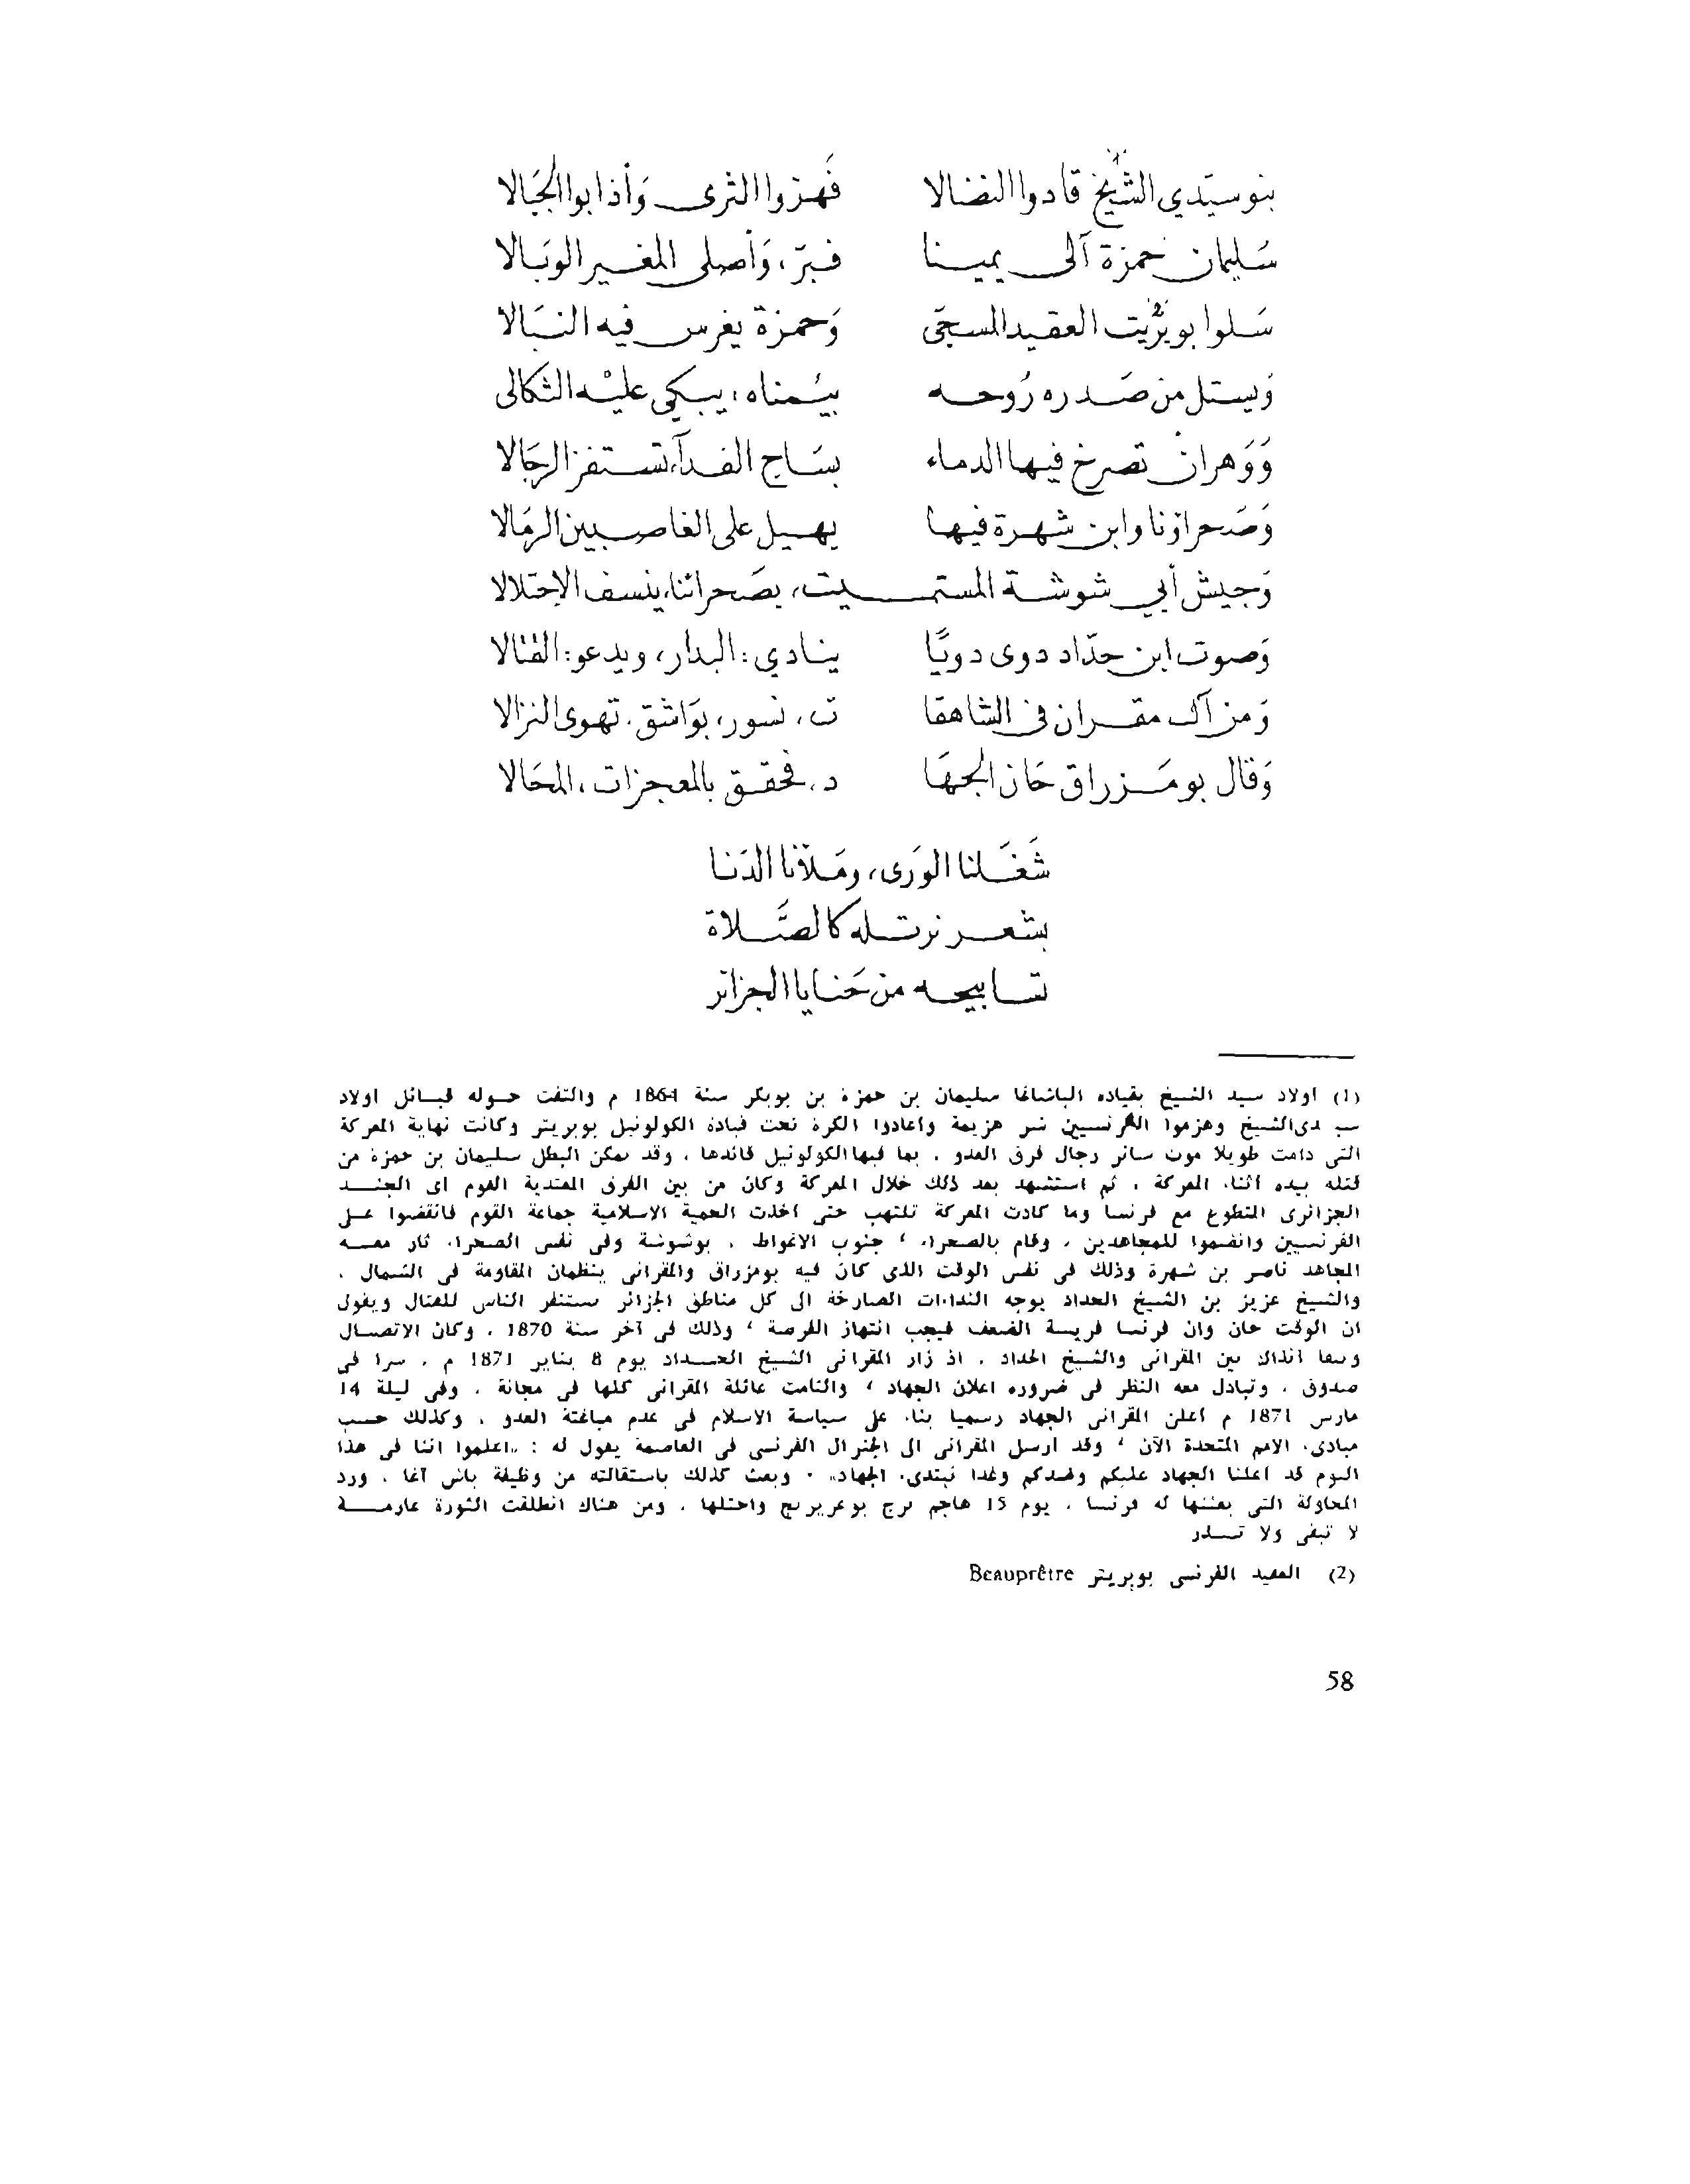 بنو سيّدي الشّيخ قادوا النضالا (1) فَهزوا الثرى وَأذابوا الجبَالا
سَليمان حمزة آلى يمينا فبرّ، وَأصلى المغير الوبَالا
سَلوا بوبْرْيت العقيد المسجّى (2) وَحمزة يغرس فيه النبَالا
وَيستل من صَدره رُوحه بيُمناه، يبكي عليْه الثكالى
وَوَهران تصرخ فيها الدماء بسَاح الفدآ، تستفز الرجَالا
وَصَحراؤنا وابن شهرة فيها يهيل على الغاصبين الرمَالا
وَجيش أبي شوشة المستميت، بصَحرائنا، ينسف الإحتلالا
وَصوت ابن حدّاد دوى دويًّا ينادي: البدار، ويدعو: القتالا
وَمن آل مقران في الشاهقا ت، نسور، بوَاشق، تهوى النزالا
وَقال بومَزراق حَان الجهَا د، فحقق بالمعجزات، المحَالا
شَغَلنا الورَى، ومَلأنا الدّنا
بشعر نرتله كالصَّلاة
تسابيحه من حَنايا الجزائر
(1) اولاد سيد الشيخ بقياده الباشاغا سليمان بن حمزة بن بوبكر سنة 1864 م والتفت حوله قبائل اولاد
سيدى الشيخ وهزموا الفرنسيين شر هزيمة وأعادوا الكرة تحت قيادة الكولونيل بوبريتر وكانت نهاية المعركة
التى دامت طويلا موت سائر رجال فرق العدو ، بما فيها الكولونيل قائدها ، وقد تمكن البطل سليمان بن حمزة من
قتله بيده أثناء المعركة ، ثم استشهد بعد ذلك خلال المعركة وكان من بين الفرق المعتدية القوم اى الجند
الجزائرى المتطوع مع فرنسا وما كادت المعركة تلتهب حتى اخذت الحمية الاسلامية جماعة القوم فانقضوا على
الفرنسيين وانضموا للمجاهدين ، وقام بالصحراء ، جنوب الاغواط ، بوشوشة وفى نفس الصحراء ثار معه
المجاهد ناصر بن شهرة وذلك فى نفس الوقت الذى كان فيه بومزراق والمقرانى ينظمان المقاومة فى الشمال ،
والشيخ عزيز بن الشيخ الحداد يوجه النداءات الصارخة الى كل مناطق الجزائر يستنفر الناس للقتال ويقول
ان الوقت حان وان فرنسا فريسة الضعف فيجب انتهاز الفرصة ، وذلك فى آخر سنة 1870 ، وكان الاتصال
وثيقا آنذاك بين المقرانى والشيخ الحداد ، اذ زار المقرانى الشيخ الحداد يوم 8 يناير 1871 م ، سرا فى
صدوق ، وتبادل معه النظر فى ضروره اعلان الجهاد ، والتامت عائلة المقرانى كلها فى مجانة ، وفى ليلة 14
مارس 1871 م أعلن المقرانى الجهاد رسميا بناء على سياسة الاسلام فى عدم مباغتة العدو ، وكذلك حسب
مبادىء الامم المتحدة الآن ، وقد ارسل المقرانى الى الجنرال الفرنسى فى العاصمة يقول له : «اعلموا اننا فى هذا
اليوم قد اعلنا الجهاد عليكم وضدكم وغدا نبتدىء الجهاد» . وبعث كذلك باستقالته من وظيفة باش آغا ، ورد
المحاولة التى بعثتها له فرنسا ، يوم 15 هاجم برج بوعريريج واحتلها ، ومن هناك انطلقت الثورة عارمة
لا تبقى ولا تذر
(2) العقيد الفرنسى بوبريتر Beauprêtre
58